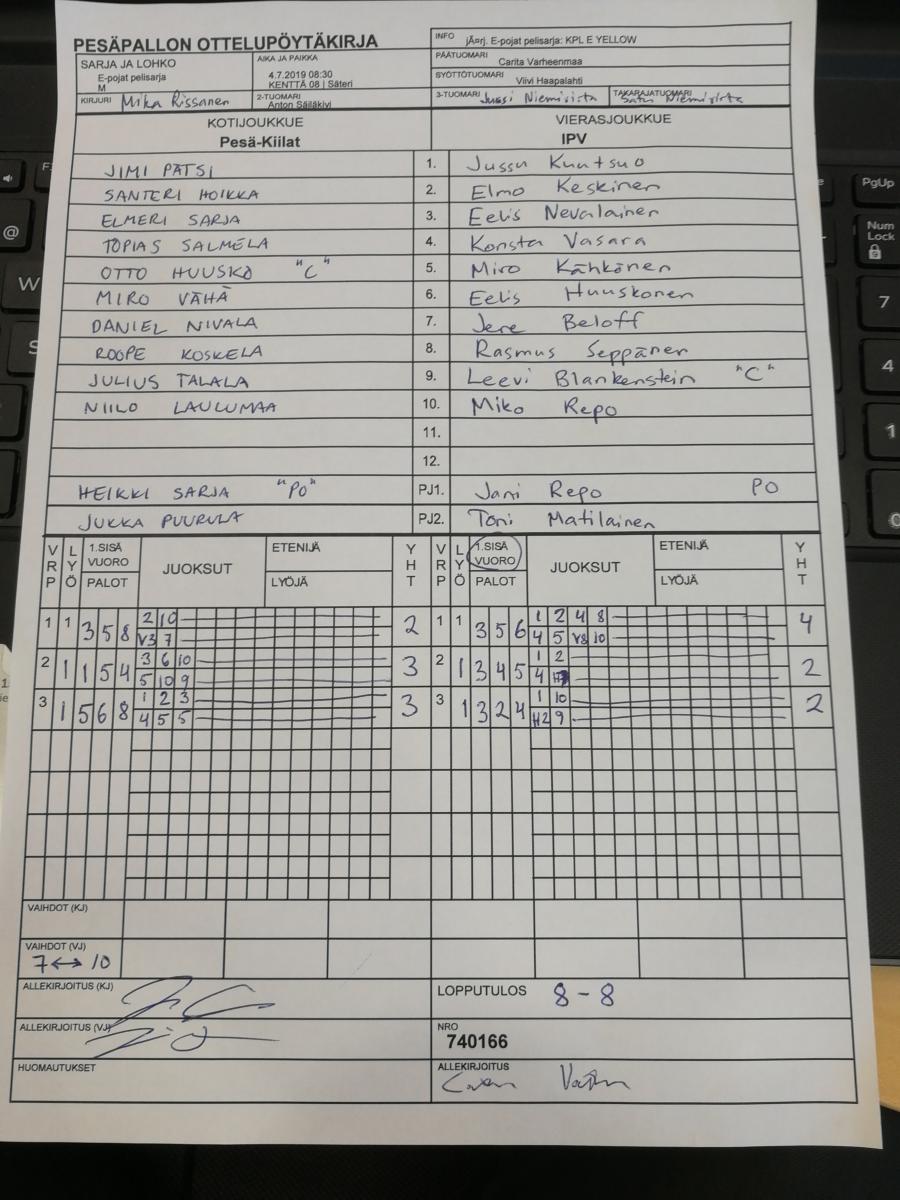 PESÄPALLON OTTELUPÖYTÄKIRJA
INFO jÃ¤rj. E-pojat pelisarja: KPL E YELLOW
SARJA JA LOHKO
E-pojat pelisarja
M
AIKA JA PAIKKA
4.7.2019 08:30
KENTTÄ 08 | Säteri
PÄÄTUOMARI Carita Varheenmaa
SYÖTTÖTUOMARI Viivi Haapalahti
KIRJURI Mika Rissanen
2-TUOMARI Anton Säiläkivi
3-TUOMARI Jussi Niemisirta
TAKARAJATUOMARI Satu Niemisirta
KOTIJOUKKUE VIERASJOUKKUE
Pesä-Kiilat IPV
JIMI PATSI 1. Jussu Kuutsuo
SANTERI HOIKKA 2. Elmo Keskinen
ELMERI SARJA 3. Eelis Nevalainen
TOPIAS SALMELA 4. Konsta Vasara
OTTO HUUSKO "C" 5. Miro Kähkönen
MIRO VÄHÄ 6. Eelis Huuskonen
DANIEL NIVALA 7. Jere Beloff
ROOPE KOSKELA 8. Rasmus Seppänen
JULIUS TALALA 9. Leevi Blankenstein "C"
NIILO LAULUMAA 10. Miko Repo
11.
12.
HEIKKI SARJA "PO" PJ1. Jani Repo PO
JUKKA PUURULA PJ2. Toni Matilainen
VRP LYÖ 1.SISÄ VUORO PALOT JUOKSUT ETENIJÄ LYÖJÄ YHT VRP LYÖ 1.SISÄ VUORO PALOT JUOKSUT ETENIJÄ LYÖJÄ YHT
1 1 3 5 8 2 10 2 1 1 3 5 6 1 2 4 8 4
V3 7 4 5 V8 10
2 1 1 5 4 3 6 10 3 2 1 3 4 5 1 2 2
5 10 9 4
3 1 5 6 8 1 2 3 3 3 1 3 2 4 1 10 2
4 5 5 H2 9
VAIHDOT (KJ)
VAIHDOT (VJ)
7 ↔ 10
ALLEKIRJOITUS (KJ) LOPPUTULOS 8 - 8
ALLEKIRJOITUS (VJ) NRO
740166
HUOMAUTUKSET ALLEKIRJOITUS
PgUp
Num
Lock
7
4
1
0
@
W